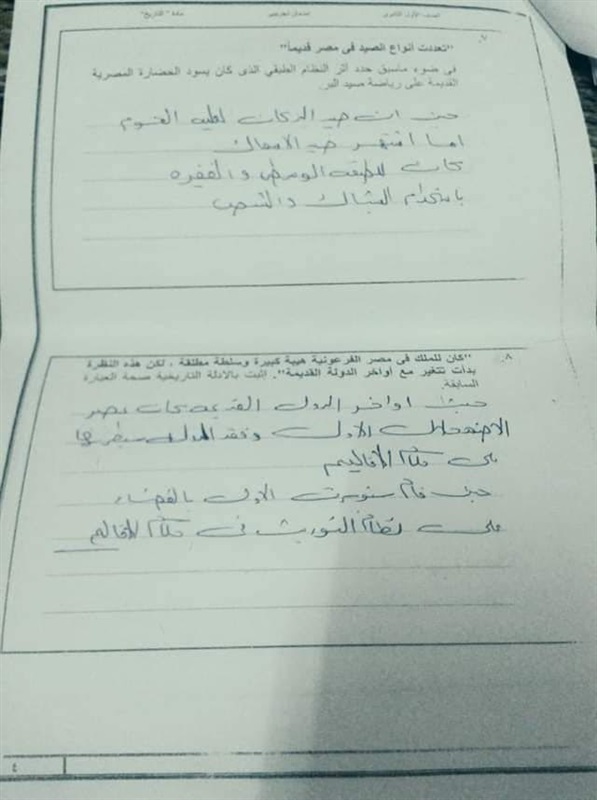 الصف الأول الثانوي امتحان تجريبي مادة "التاريخ"
٧.
"تعددت أنواع الصيد فى مصر قديماً"
فى ضوء ماسبق حدد أثر النظام الطبقي الذى كان يسود الحضارة المصرية
القديمة على رياضة صيد البر.
حيث ان صيد البر كان لطبقه
اما اقتصر صيد الاسماك
كانت للطبقه الوسطى والفقيره
باستخدام الشباك والشص
٨.
"كان للملك فى مصر الفرعونية هيبة كبيرة وسلطة مطلقة ، لكن هذه النظرة
بدأت تتغير مع أواخر الدولة القديمة". اثبت بالأدلة التاريخية صحة العبارة
السابقة.
حيث اواخر الدوله القديمه كانت عصر
الاضمحلال الاول وفقد الملك سيطرتها
على حكام الأقاليم
حيث قام سنوسرت الاول بالقضاء
على نظام التوريث فى حكام الاقاليم
٤